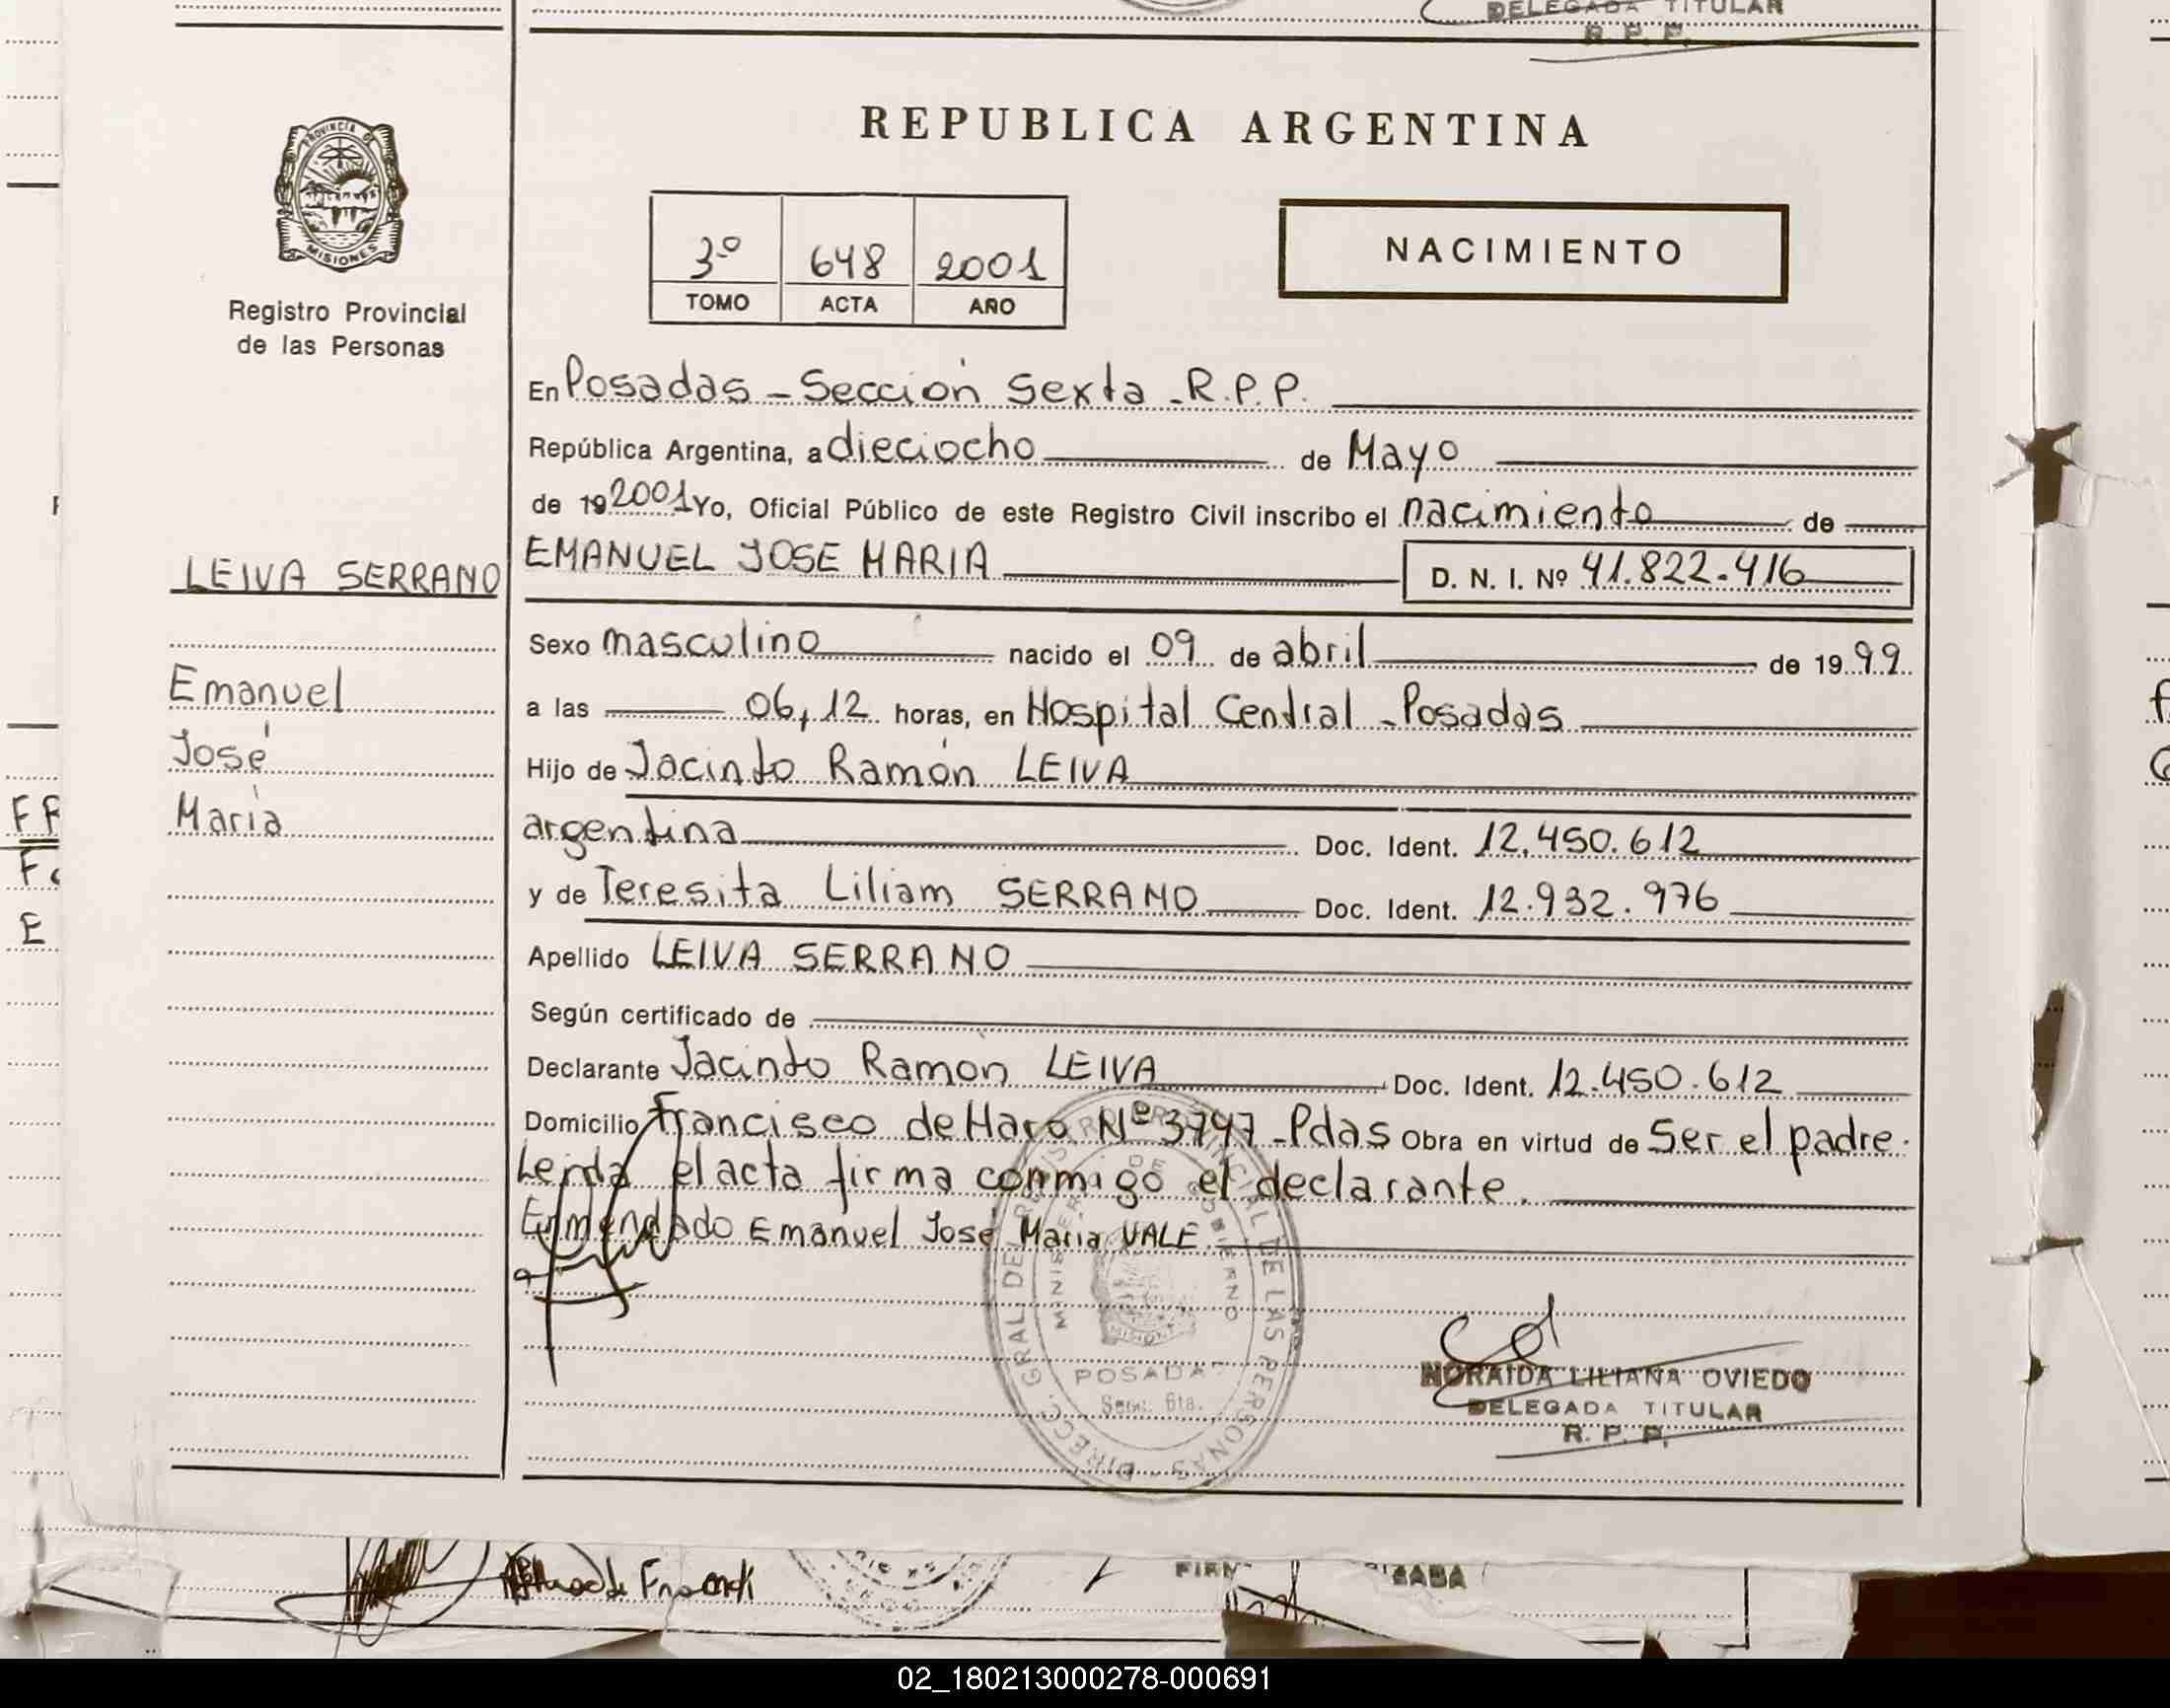 DELEGADA TITULAR
R. P. P.
PROVINCIA D
MISIONES
Registro Provincial
de las Personas
REPUBLICA ARGENTINA
3º 648 2001
TOMO ACTA AÑO
NACIMIENTO
En Posadas - Sección Sexta - R.P.P.
República Argentina, a dieciocho de Mayo
de 19 2001 Yo, Oficial Público de este Registro Civil inscribo el nacimiento de
LEIVA SERRANO
EMANUEL JOSE MARIA D. N. I. Nº 41.822.416
Sexo masculino nacido el 09 de abril de 19 99
Emanuel
a las 06,12 horas, en Hospital Central - Posadas
José
Hijo de Jacinto Ramón LEIVA
María
argentina Doc. Ident. 12.450.612
y de Teresita Liliam SERRANO Doc. Ident. 12.932.976
Apellido LEIVA SERRANO
Según certificado de
Declarante Jacinto Ramón LEIVA Doc. Ident. 12.450.612
Domicilio Francisco de Haro Nº 3747 - Pdas Obra en virtud de Ser el padre.
Leida el acta firma conmigo el declarante.
Enmendado Emanuel José María VALE.
DIRECC. GRAL DEL REGISTRO PROVINCIAL DE LAS PERSONAS
MINISTERIO DE GOBIERNO
POSADAS
Secc. 6ta.
NORAIDA LILIANA OVIEDO
DELEGADA TITULAR
R. P. P.
02_180213000278-000691